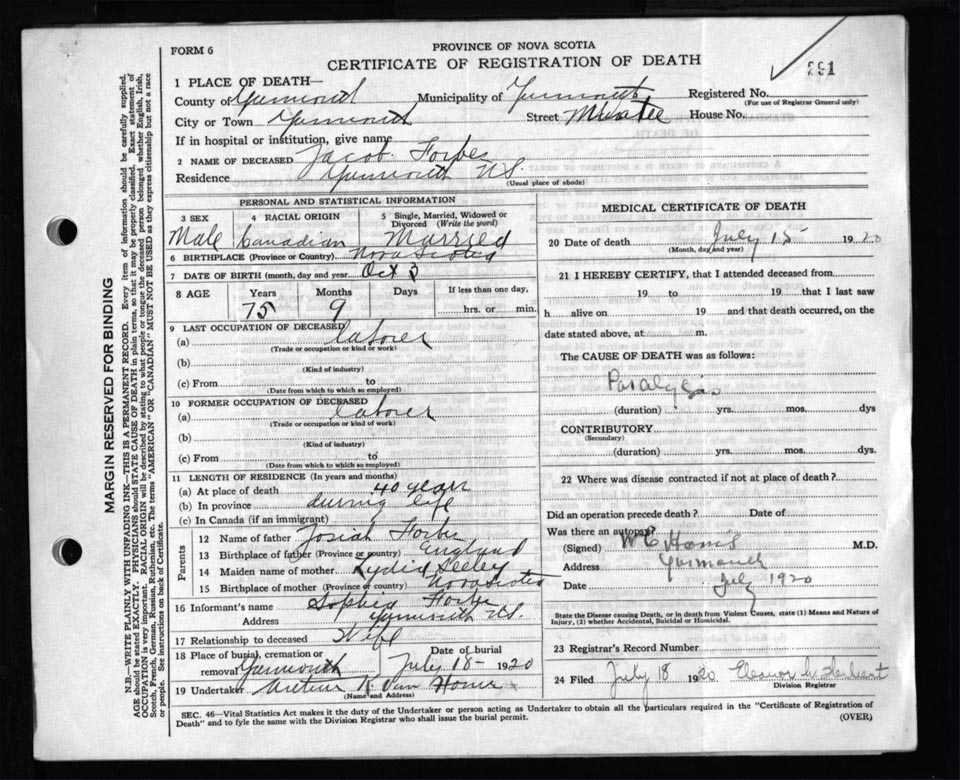 FORM 6
PROVINCE OF NOVA SCOTIA
CERTIFICATE OF REGISTRATION OF DEATH
291
1 PLACE OF DEATH—
County of Yarmouth Municipality of Yarmouth Registered No.
(For use of Registrar General only)
City or Town Yarmouth Street House No.
If in hospital or institution, give name
2 NAME OF DECEASED Jacob Forbes
Residence Yarmouth N.S.
(Usual place of abode)
PERSONAL AND STATISTICAL INFORMATION
3 SEX 4 RACIAL ORIGIN 5 Single, Married, Widowed or Divorced (Write the word)
Male Canadian Married
6 BIRTHPLACE (Province or Country) Nova Scotia
7 DATE OF BIRTH (month, day and year) Oct 3
8 AGE Years Months Days If less than one day,
75 9 hrs. or min.
9 LAST OCCUPATION OF DECEASED
(a) laborer
(Trade or occupation or kind or work)
(b)
(Kind of industry)
(c) From to
(Date from which to which so employed)
10 FORMER OCCUPATION OF DECEASED
(a) laborer
(Trade or occupation or kind of work)
(b)
(Kind of industry)
(c) From to
(Date from which to which so employed)
11 LENGTH OF RESIDENCE (In years and months)
(a) At place of death 40 years
(b) In province during life
(c) In Canada (if an immigrant)
Parents
12 Name of father Josiah Forbes
13 Birthplace of father (Province or country) England
14 Maiden name of mother Lydia Seeley
15 Birthplace of mother (Province or country) Nova Scotia
16 Informant's name Sophia Forbes
Address Yarmouth N.S.
17 Relationship to deceased Wife
18 Place of burial, cremation or removal Yarmouth Date of burial July 18 1920
19 Undertaker Arthur K Van Horne
(Name and Address)
MEDICAL CERTIFICATE OF DEATH
20 Date of death July 15 1920
(Month, day and year)
21 I HEREBY CERTIFY, that I attended deceased from
19 to 19 that I last saw
h alive on 19 and that death occurred, on the
date stated above, at m.
The CAUSE OF DEATH was as follows:
Paralysis
(duration) yrs. mos. dys
CONTRIBUTORY
(Secondary)
(duration) yrs. mos. dys.
22 Where was disease contracted if not at place of death?
Did an operation precede death? Date of
Was there an autopsy?
(Signed) W C Harris M.D.
Address Yarmouth
Date July 1920
State the Disease causing Death, or in death from Violent Causes, state (1) Means and Nature of
Injury, (2) whether Accidental, Suicidal or Homicidal.
23 Registrar's Record Number
24 Filed July 18 1920 Herbert
Division Registrar
SEC. 46—Vital Statistics Act makes it the duty of the Undertaker or person acting as Undertaker to obtain all the particulars required in the "Certificate of Registration of
Death" and to fyle the same with the Division Registrar who shall issue the burial permit. (OVER)
MARGIN RESERVED FOR BINDING
N.B.—WRITE PLAINLY WITH UNFADING INK—THIS IS A PERMANENT RECORD. Every item of information should be carefully supplied.
AGE should be stated EXACTLY. PHYSICIANS should STATE CAUSE OF DEATH in plain terms, so that it may be properly classified. Exact statement of
OCCUPATION is very important. RACIAL ORIGIN will be described by stating to what people or tongue the deceased person belonged whether English, Irish,
Scotch, French, German, Russian, Ruthenian, etc. The terms "AMERICAN" OR "CANADIAN" MUST NOT BE USED as they express citizenship but not a race
or people. See instructions on back of Certificate.